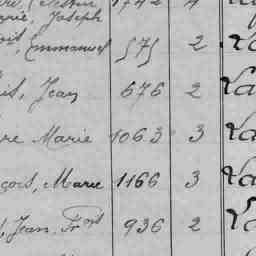 Joseph
Emmanuel 575 2 La
is, Jean 676 2 La
re Marie 1063 3 La
çois, Marie 1166 3 La
, Jean, Frois 936 2 La